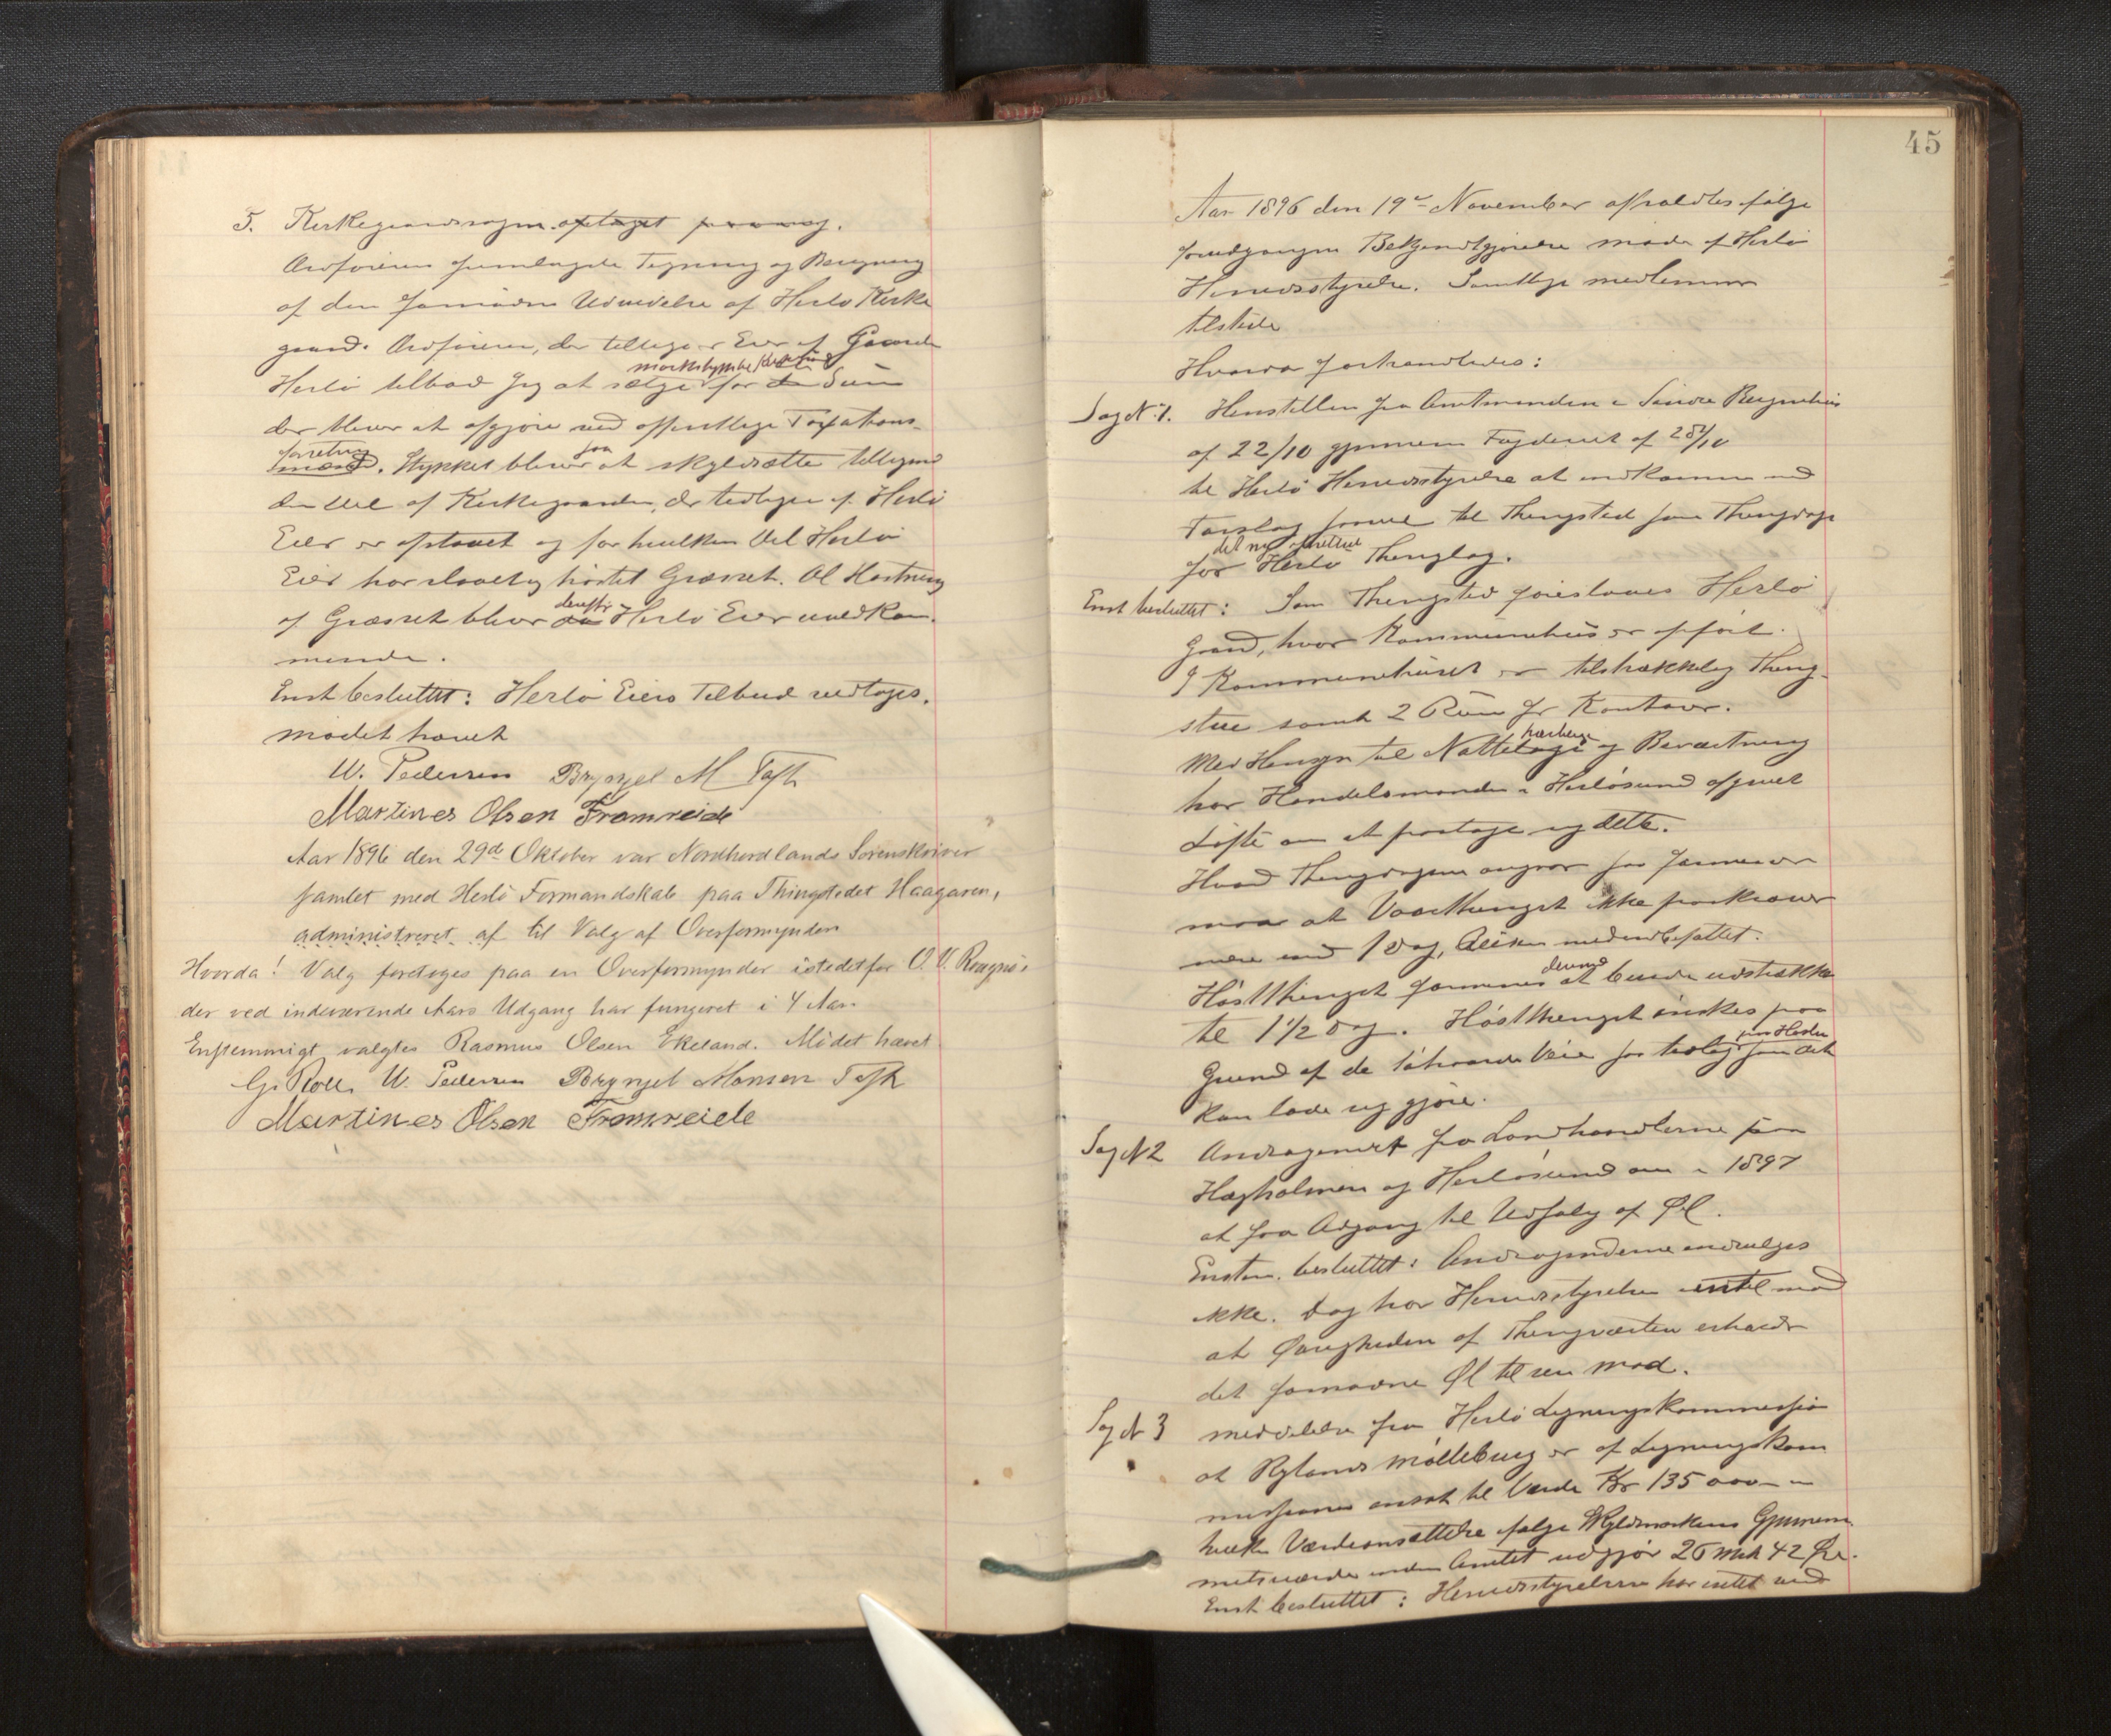 5. Kirkegaardssagen optaget paa nyt.
Ordføreren fremlagde Tegning og Beregning
af den fornødne Udvidelse af Herlø Kirke
gaard. Ordføreren, der tillige er Eier af Gaarden
markstykke
Herlø tilbød sig at sælge for den Sum
der bliver at afgjøre ved offentlige Taxations-
forretning faa
mænd. Stykket bliver at skyldsætte tilligemed
den Del af Kirkegaarden, der tidligere af Herlø
Eier er afstaaet og for hvilken Del Herlø
Eier har slaaet og høstet Græsset. Al Høstning
derefter
af Græsset bliver da Herlø Eier uvedkom-
mende.
Enst besluttet: Herlø Eiers Tilbud vedtoges.
Mødet hævet
W. Pedersen Brynjel M Toft
Martines Olsen Fromreide
Aar 1896 den 29de Oktober var Nordhordlands Sorenskriver
samlet med Herlø Formandskab paa Thingstedet Haagaren,
administreret af til Valg af Overformynder
Hvorda! Valg foretoges paa en Overformynder istedetfor O. V.
der ved indeværende Aars Udgang har fungeret i 4 Aar.
Enstemmigt valgtes Rasmus Olsen Ekeland. Mødet hævet
G. Roll. W. Pedersen Brynjel Monsen Toft
Martines Olsen Fromreide
45
Aar 1896 den 19de November afholdtes ifølge
forudgangen Bekjendtgjørelse møde af Herlø
Herredsstyrelse. Samtlige medlemmer
tilstede
Hvorda forhandledes:
Sag N. 1. Henstillen fra Amtmanden i Søndre Bergenhus
af 22/10 gjennem Fogderiet af 28/10
til Herlø Herredsstyrelse at indkomme med
Forslag saavel til Thingsted som Thingdage
det ny oprettede
for Herlø Thinglag.
Enst besluttet: Som Thingsted foreslaaes Herlø
Gaard, hvor Kommunehus er opført.
I Kommunehuset er tilstrækkelig Thing-
stue samt 2 Rum for Kontorer.
herberge
Med Hensyn til Natteloge og Beværtning
har Handelsmanden i Herløsund afgivet
Løfte om at paatage sig dette.
Hvad Thingdagene angaar saa formener
man at Vaarthinget ikke paakræver
mere end 1 Dag, Reisen medindbefattet.
derimod
Høstthinget formenes at burde udstrækkes
til 1½ Dag. Høstthinget ønskes paa
om Høsten
Grund af de Veie saa tidlig som det
kan lade sig gjøre.
Sag N 2 Andragendet fra Landhandlerne paa
Hægholmen og Herløsund om i 1897
at faa Adgang til Udsalg af Øl.
Enstm. besluttet: Andragenderne indvilges
ikke. Dog har Herredsstyrelsen intet mod
at Øvrigheden af Thingværten erholder
det fornødne Øl til sen mad.
Sag N 3 Meddelelse fra Herlø Ligningskommission
at Rylands Møllebrug er af Ligningskom
missionen ansat til Værdi Kr 135000 –
hvilken Værdiansættelse ifølge Skyldmarkens Gjennem
snitsværdi inden Amtet udgjør 26 Mark 42 Øre.
Enst besluttet: Herredsstyrelsen har intet imod